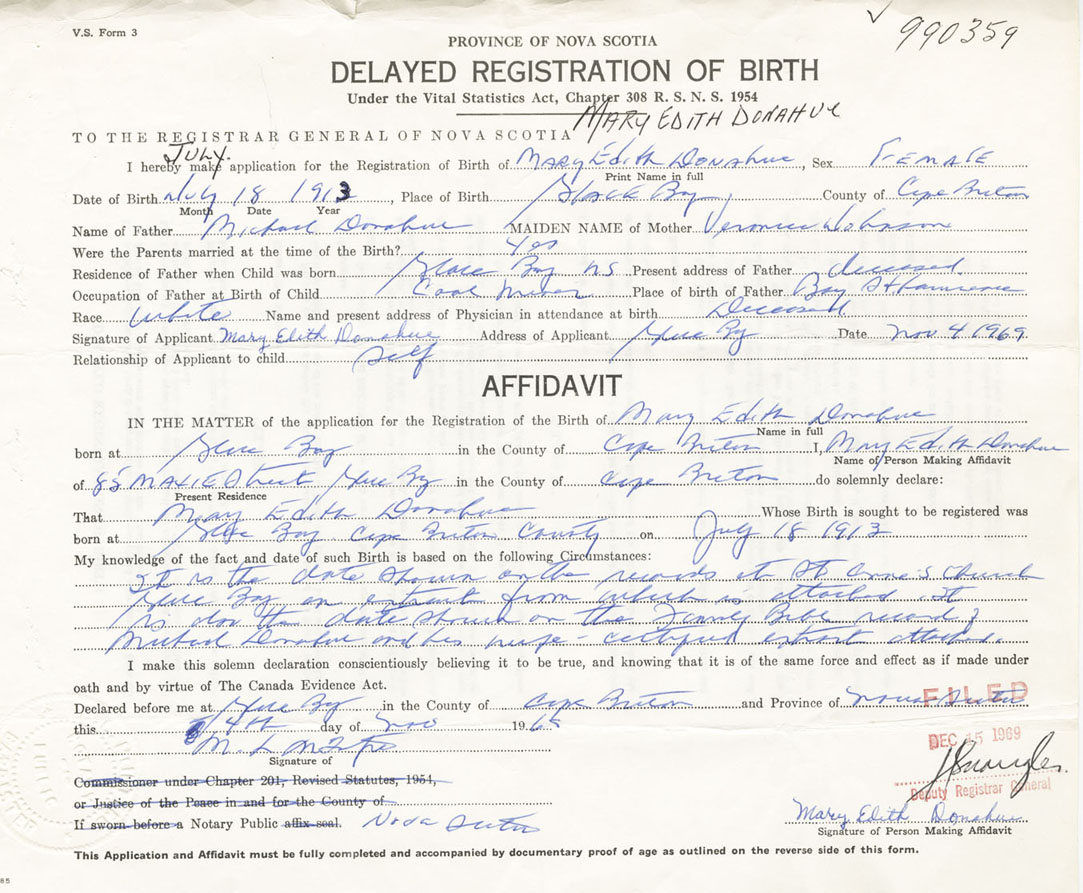 V.S. Form 3
990359
PROVINCE OF NOVA SCOTIA
DELAYED REGISTRATION OF BIRTH
Under the Vital Statistics Act, Chapter 308 R. S. N. S. 1954
MARY EDITH DONAHUE
TO THE REGISTRAR GENERAL OF NOVA SCOTIA
JULY.
I hereby make application for the Registration of Birth of Mary Edith Donahue, Sex Female
Print Name in full
Date of Birth July 18 1913, Place of Birth Glace Bay, County of Cape Breton
Month Date Year
Name of Father Michael Donahue MAIDEN NAME of Mother Veronica Johnson
Were the Parents married at the time of the Birth? Yes
Residence of Father when Child was born Glace Bay NS Present address of Father deceased
Occupation of Father at Birth of Child Coal Miner Place of birth of Father Bay St Lawrence
Race White Name and present address of Physician in attendance at birth Deceased
Signature of Applicant Mary Edith Donahue Address of Applicant Glace Bay Date Nov 4 1969
Relationship of Applicant to child Self
AFFIDAVIT
IN THE MATTER of the application for the Registration of the Birth of Mary Edith Donahue
Name in full
born at Glace Bay in the County of Cape Breton I, Mary Edith Donahue
Name of Person Making Affidavit
of 85 Street Glace Bay in the County of Cape Breton do solemnly declare:
Present Residence
That Mary Edith Donahue Whose Birth is sought to be registered was
born at Glace Bay Cape Breton County on July 18 1913
My knowledge of the fact and date of such Birth is based on the following Circumstances:
It is the date shown on the records at St Anne's Church
Glace Bay an extract from which is attached. It
is also the date shown on the Family Bible record of
Michael Donahue and his wife - certified extract attached.
I make this solemn declaration conscientiously believing it to be true, and knowing that it is of the same force and effect as if made under
oath and by virtue of The Canada Evidence Act.
Declared before me at Glace Bay in the County of Cape Breton and Province of Nova Scotia
FILED
this 4th day of Nov 1969
DEC 15 1969
M. L.
Signature of
Commissioner under Chapter 201, Revised Statutes, 1954,
Deputy Registrar General
or Justice of the Peace in and for the County of
Mary Edith Donahue
If sworn before a Notary Public affix seal. Nova Scotia
Signature of Person Making Affidavit
This Application and Affidavit must be fully completed and accompanied by documentary proof of age as outlined on the reverse side of this form.